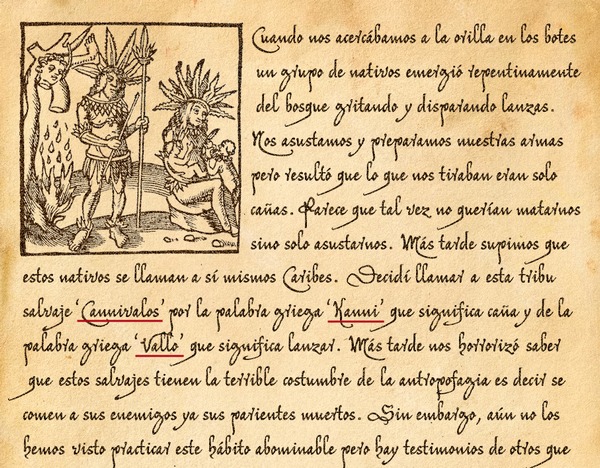 Cuando nos acercábamos a la orilla en los botes
un grupo de nativos emergió repentinamente
del bosque gritando y disparando lanzas.
Nos asustamos y preparamos nuestras armas
pero resultó que lo que nos tiraban eran solo
cañas. Parece que tal vez no querían matarnos
sino solo asustarnos. Más tarde supimos que
estos nativos se llaman a sí mismos Caribes. Decidí llamar a esta tribu
salvaje ‘Cannivalos’ por la palabra griega ‘Kanni’ que significa caña y de la
palabra griega ‘Vallo’ que significa lanzar. Más tarde nos horrorizó saber
que estos salvajes tienen la terrible costumbre de la antropofagia es decir se
comen a sus enemigos ya sus parientes muertos. Sin embargo, aún no los
hemos visto practicar este hábito abominable pero hay testimonios de otros que